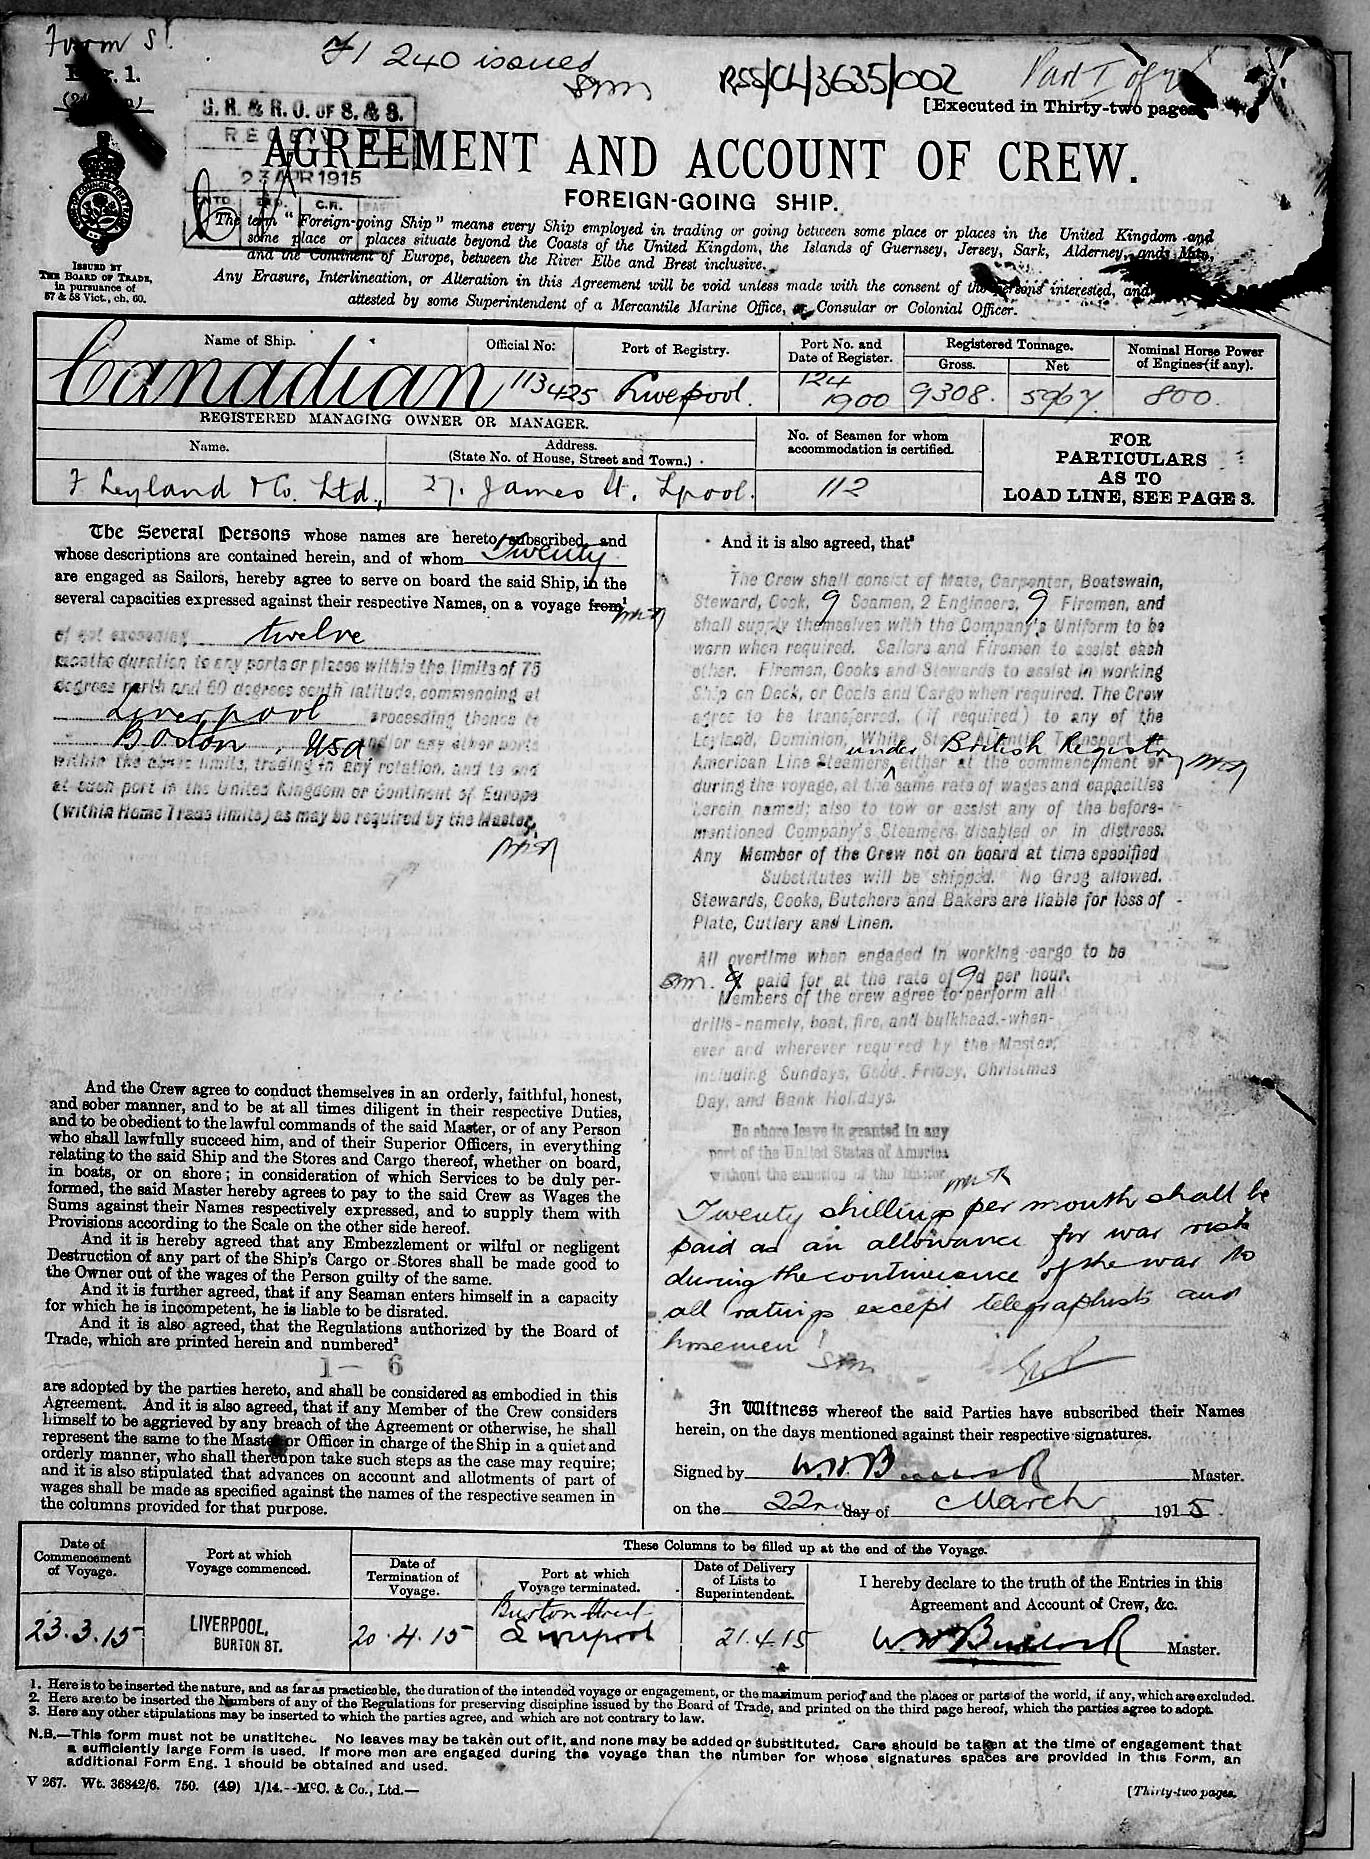 Form S!
F1 240 issued
RSS/CL/3635/002
Part I of
[Executed in Thirty-two pages
G. R. & R. O. OF S. & S.
23 APR 1915
C.R.
AGREEMENT AND ACCOUNT OF CREW.
FOREIGN-GOING SHIP.
The term "Foreign-going Ship" means every Ship employed in trading or going between some place or places in the United Kingdom and
some place or places situate beyond the Coasts of the United Kingdom, the Islands of Guernsey, Jersey, Sark, Alderney, and Man,
and the Continent of Europe, between the River Elbe and Brest inclusive.
Any Erasure, Interlineation, or Alteration in this Agreement will be void unless made with the consent of the persons interested, and
attested by some Superintendent of a Mercantile Marine Office, or Consular or Colonial Officer.
ISSUED BY
THE BOARD OF TRADE,
in pursuance of
57 & 58 Vict., ch. 60.
Name of Ship.
Official No:
Port of Registry.
Port No. and
Date of Register.
Registered Tonnage.
Gross.
Net
Nominal Horse Power
of Engines (if any).
Canadian
113425
Liverpool.
124
1900
9308.
5967.
800.
REGISTERED MANAGING OWNER OR MANAGER.
Name.
Address.
(State No. of House, Street and Town.)
No. of Seamen for whom
accommodation is certified.
FOR
PARTICULARS
AS TO
LOAD LINE, SEE PAGE 3.
F Leyland & Co. Ltd.,
27. James St. Lpool.
112
The Several Persons whose names are hereto subscribed, and
whose descriptions are contained herein, and of whom Twenty
are engaged as Sailors, hereby agree to serve on board the said Ship, in the
several capacities expressed against their respective Names, on a voyage from¹
of not exceeding twelve
months duration to any ports or places within the limits of 75
degrees north and 60 degrees south latitude, commencing at
Liverpool proceeding thence to
Boston, USA and/or any other ports
within the above limits, trading in any rotation, and to end
at such port in the United Kingdom or Continent of Europe
(within Home Trade limits) as may be required by the Master,
And the Crew agree to conduct themselves in an orderly, faithful, honest,
and sober manner, and to be at all times diligent in their respective Duties,
and to be obedient to the lawful commands of the said Master, or of any Person
who shall lawfully succeed him, and of their Superior Officers, in everything
relating to the said Ship and the Stores and Cargo thereof, whether on board,
in boats, or on shore; in consideration of which Services to be duly per-
formed, the said Master hereby agrees to pay to the said Crew as Wages the
Sums against their Names respectively expressed, and to supply them with
Provisions according to the Scale on the other side hereof.
And it is hereby agreed that any Embezzlement or wilful or negligent
Destruction of any part of the Ship's Cargo or Stores shall be made good to
the Owner out of the wages of the Person guilty of the same.
And it is further agreed, that if any Seaman enters himself in a capacity
for which he is incompetent, he is liable to be disrated.
And it is also agreed, that the Regulations authorized by the Board of
Trade, which are printed herein and numbered²
1 — 6
are adopted by the parties hereto, and shall be considered as embodied in this
Agreement. And it is also agreed, that if any Member of the Crew considers
himself to be aggrieved by any breach of the Agreement or otherwise, he shall
represent the same to the Master or Officer in charge of the Ship in a quiet and
orderly manner, who shall thereupon take such steps as the case may require;
and it is also stipulated that advances on account and allotments of part of
wages shall be made as specified against the names of the respective seamen in
the columns provided for that purpose.
And it is also agreed, that³
The Crew shall consist of Mate, Carpenter, Boatswain,
Steward, Cook, 9 Seamen, 2 Engineers, 9 Firemen, and
shall supply themselves with the Company's Uniform to be
worn when required. Sailors and Firemen to assist each
other. Firemen, Cooks and Stewards to assist in working
Ship on Deck, or Coals and Cargo when required. The Crew
agree to be transferred, (if required) to any of the
Leyland, Dominion, White Star, Atlantic Transport
under British Registry
American Line Steamers, either at the commencement or
during the voyage, at the same rate of wages and capacities
herein named; also to tow or assist any of the before-
mentioned Company's Steamers disabled or in distress.
Any Member of the Crew not on board at time specified
Substitutes will be shipped. No Grog allowed.
Stewards, Cooks, Butchers and Bakers are liable for loss of
Plate, Cutlery and Linen.
All overtime when engaged in working cargo to be
paid for at the rate of 9d per hour.
Members of the crew agree to perform all
drills-namely, boat, fire, and bulkhead,-when-
ever and wherever required by the Master,
including Sundays, Good Friday, Christmas
Day, and Bank Holidays.
No shore leave is granted in any
port of the United States of America
without the sanction of the Master
Twenty shillings per month shall be
paid as an allowance for war risk
during the continuance of the war to
all ratings except telegraphists and
horsemen
In Witness whereof the said Parties have subscribed their Names
herein, on the days mentioned against their respective signatures.
Signed by Master.
on the 22nd day of March 1915
Date of
Commencement
of Voyage.
Port at which
Voyage commenced.
These Columns to be filled up at the end of the Voyage.
Date of
Termination of
Voyage.
Port at which
Voyage terminated.
Date of Delivery
of Lists to
Superintendent.
I hereby declare to the truth of the Entries in this
Agreement and Account of Crew, &c.
23.3.15
LIVERPOOL,
BURTON ST.
20.4.15
Liverpool
21.4.15
Master.
1. Here is to be inserted the nature, and as far as practicable, the duration of the intended voyage or engagement, or the maximum period and the places or parts of the world, if any, which are excluded.
2. Here are to be inserted the Numbers of any of the Regulations for preserving discipline issued by the Board of Trade, and printed on the third page hereof, which the parties agree to adopt.
3. Here any other stipulations may be inserted to which the parties agree, and which are not contrary to law.
N.B.—This form must not be unstitched. No leaves may be taken out of it, and none may be added or substituted. Care should be taken at the time of engagement that
a sufficiently large Form is used. If more men are engaged during the voyage than the number for whose signatures spaces are provided in this Form, an
additional Form Eng. 1 should be obtained and used.
V 267. Wt. 36842/6. 750. (49) 1/14.--McC. & Co., Ltd.—
[Thirty-two pages.